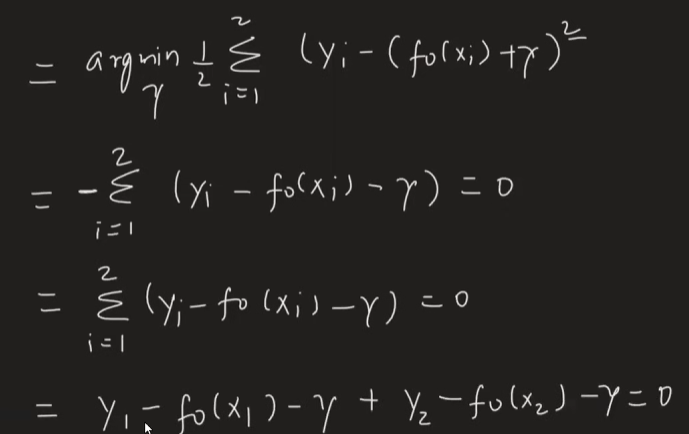 = argmin γ 1/2 Σ i=1 2 (yi - (fo(xi) + γ)²
= - Σ i=1 2 (yi - fo(xi) - γ) = 0
= Σ i=1 2 (yi - fo(xi) - γ) = 0
= y1 - fo(x1) - γ + y2 - fo(x2) - γ = 0